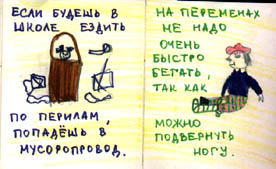 ЕСЛИ БУДЕШЬ В
ШКОЛЕ ЕЗДИТЬ
ПО ПЕРИЛАМ,
ПОПАДЁШЬ В
МУСОРОПРОВОД.
НА ПЕРЕМЕНАХ
НЕ НАДО
ОЧЕНЬ
БЫСТРО
БЕГАТЬ,
ТАК КАК
МОЖНО
ПОДВЕРНУТЬ
НОГУ.